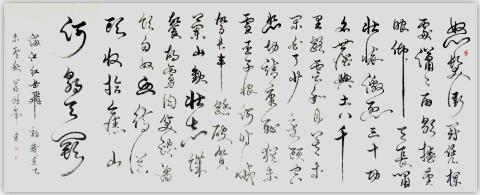 怒髮衝冠凭欄
處瀟瀟雨歇抬望
眼仰天長嘯
壯懷激烈三十功
名塵與土八千
里路雲和月莫等
閒白了少年頭空
悲切靖康恥猶未
雪臣子恨何時滅
駕長車踏破賀
蘭山缺壯志飢
餐胡虜肉笑談渴
飲匈奴血待從
頭收拾舊山
河朝天闕
滿江紅岳飛詞